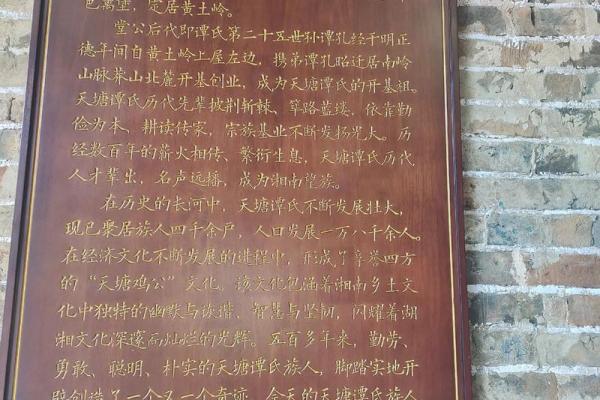 邑高堂，定居黄土岭。
堂公后代即谭氏第二十五世孙谭孔经于明正
德年间自黄土岭上屋左边，携弟谭孔昭迁居南岭
山脉莽山北麓开基创业，成为天塘谭氏的开基祖。
天塘谭氏历代先辈披荆斩棘、筚路蓝缕，依靠勤
俭为本、耕读传家，宗族基业不断发扬光大。历
经数百年的薪火相传、繁衍生息，天塘谭氏历代
人才辈出，名声远播，成为湘南望族。
在历史的长河中，天塘谭氏不断发展壮大，
现已聚居族人四千余户，人口发展一万八千余人。
在经济文化不断发展的进程中，形成了享誉四方
的“天塘鸡公”文化，该文化包涵着湘南乡土文
化中独特的幽默与诙谐、智慧与坚韧，闪耀着湖
湘文化深邃而灿烂的光辉。五百多年来，勤劳、
勇敢、聪明、朴实的天塘谭氏族人，脚踏实地开
辟创造了一个又一个奇迹，今天的天塘谭氏族人